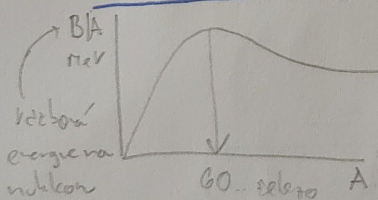 B/A
MeV
vazbová
energie na
nukleon
60.. železo A